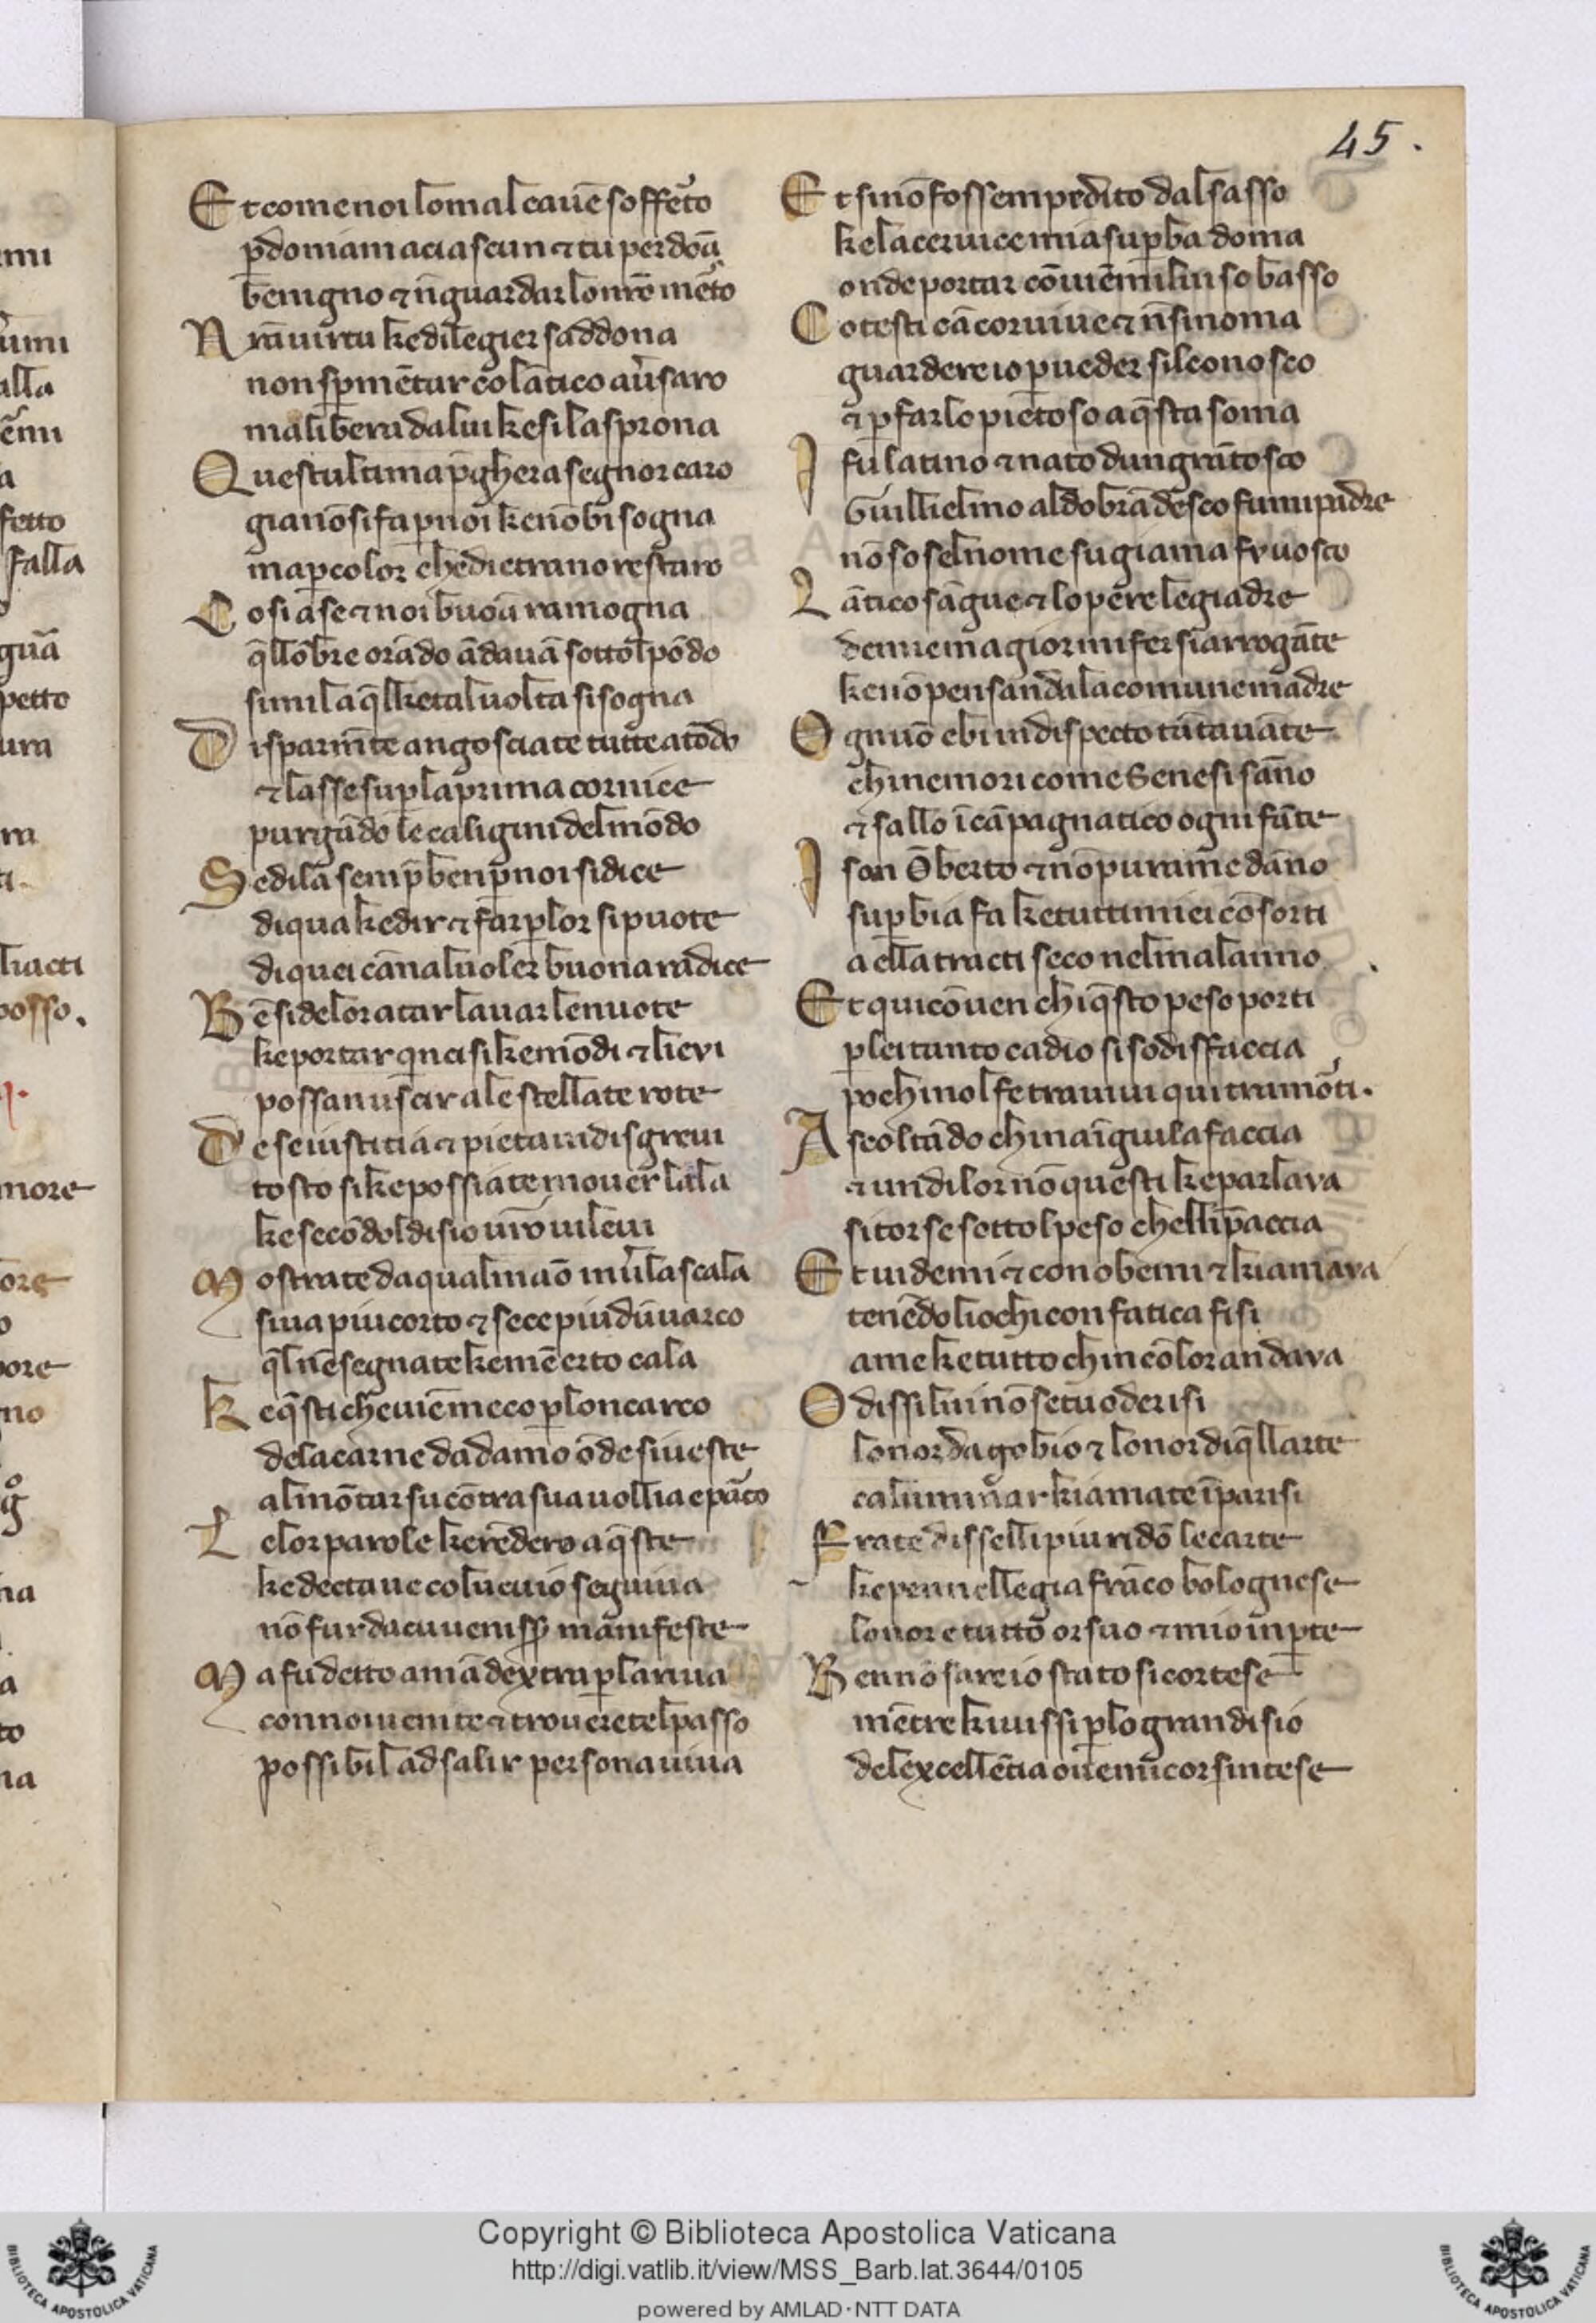 45.
Et come noi lo mal cauē soffe᷃to
ꝑdoniam a ciascun ⁊ tu perdoā
benigno ⁊ nguardar lo nr̄o mēto
Nr̄a uirtu ke di legier saddona
non spmētar co lātico auͥsaro
ma libera da lui ke si la sprona
Questultima pͥghera segnor caro
gia nō si fa ꝑ noi ke nō bisogna
ma ꝑ color che dietra no restaro
Cosi a se ⁊ noi buoā ramogna
q̄llōbre orādo ādauā sottol pōdo
simil a q̄l ke tal uolta si sogna
Disparmͥte angosciate tutte a tōdo
⁊ lasse su ꝑ la prima cornice
purgādo le caligini del mōdo
Se di la sempͥ ben ꝑ noi si dice
di qua ke dir ⁊ far ꝑ lor si puote
di quei cāna luoler buona radice
Bē si de lor atar lauar le nuote
ke portar qͥnci si ke mōdi ⁊ lievi
possan uscir a le stellate rote
De se iustitia ⁊ pieta ui disgreui
tosto si ke possiate mouer lala
ke secōdol disio ur̄o ui leui
Mostrate da qual maō inuͥla scala
si ua piu corto ⁊ se ce piu dū uarco
q̄l nēsegnate ke mē erto cala
ke q̄sti che uiē meco ꝑ loncarco
dela carne dadamo ōde si ueste
al mōtar su cōtra sua uollia e pāco
Le lor parole ke rēdero a q̄ste
ke decta ue colu cui io seguiua
nō fur da cui uenisṣͤ manifeste
Ma fu detto a mā dextra ꝑ la riua
con noi uenite ⁊ trouerete l passo
possibil ad salir persona uiua
Et si nō fosse mpedito dal sasso
ke la ceruice mia suꝑba doma
onde portar cōuiēmi lui so basso
Cotesti cācor uiue ⁊ nͦ si noma
guardere io ꝑ ueder sil conosco
⁊ ꝑ farlo pietoso a q̄sta soma
I fu latino ⁊ nato dun grāͣ tosco
Guillielmo aldobrādesco fu mi padre
nō so sel nome su gia ma fu uosco
Lātico sāgue ⁊ lopere legiadre
de miei magior mi fer si arrogāte
ke nō pensando ala comune madre
Ogni uō ebi in dispecto tātauāte
chi ne mori come Senesi sāno
⁊ sallo ī cāpagnatico ogni fāte
I son Ōberto ⁊ nō pur a me dāno
suꝑbia fa ke tutti miei cōsorti
a ella tracti seco nel malanno
Et qui cōuen chi q̄sto peso porti
ꝑ lei tanto ca dio si sodisffaccia
po chi nol fe tra uiui qui tra mōti.
Ascoltādo chinai ī giu la faccia
⁊ un di lor nō questi ke parlava
si torse sotto l peso che lli pͣaccia
Et uidemi ⁊ conobemi ⁊ kiamava
tenēdo li ochi con fatica fisi
a me ke tutto chin cō lor andava
O dissi lui nō se tu oderisi
lonor dagobio ⁊ lonor di q̄llarte
caluminͣar kiamate ī parisi
Frate dissellipiu ridō le carte
ke pennellegia frāco bolognese
lonore tutto or suo ⁊ mio in ꝑte
Ben nō sare io stato si cortese
mētre ki uissi ꝑ lo gran disio
del excellētia oue mi cor sintese
Copyright © Biblioteca Apostolica Vaticana
http://digi.vatlib.it/view/MSS_Barb.lat.3644/0105
powered by AMLAD·NTT DATA